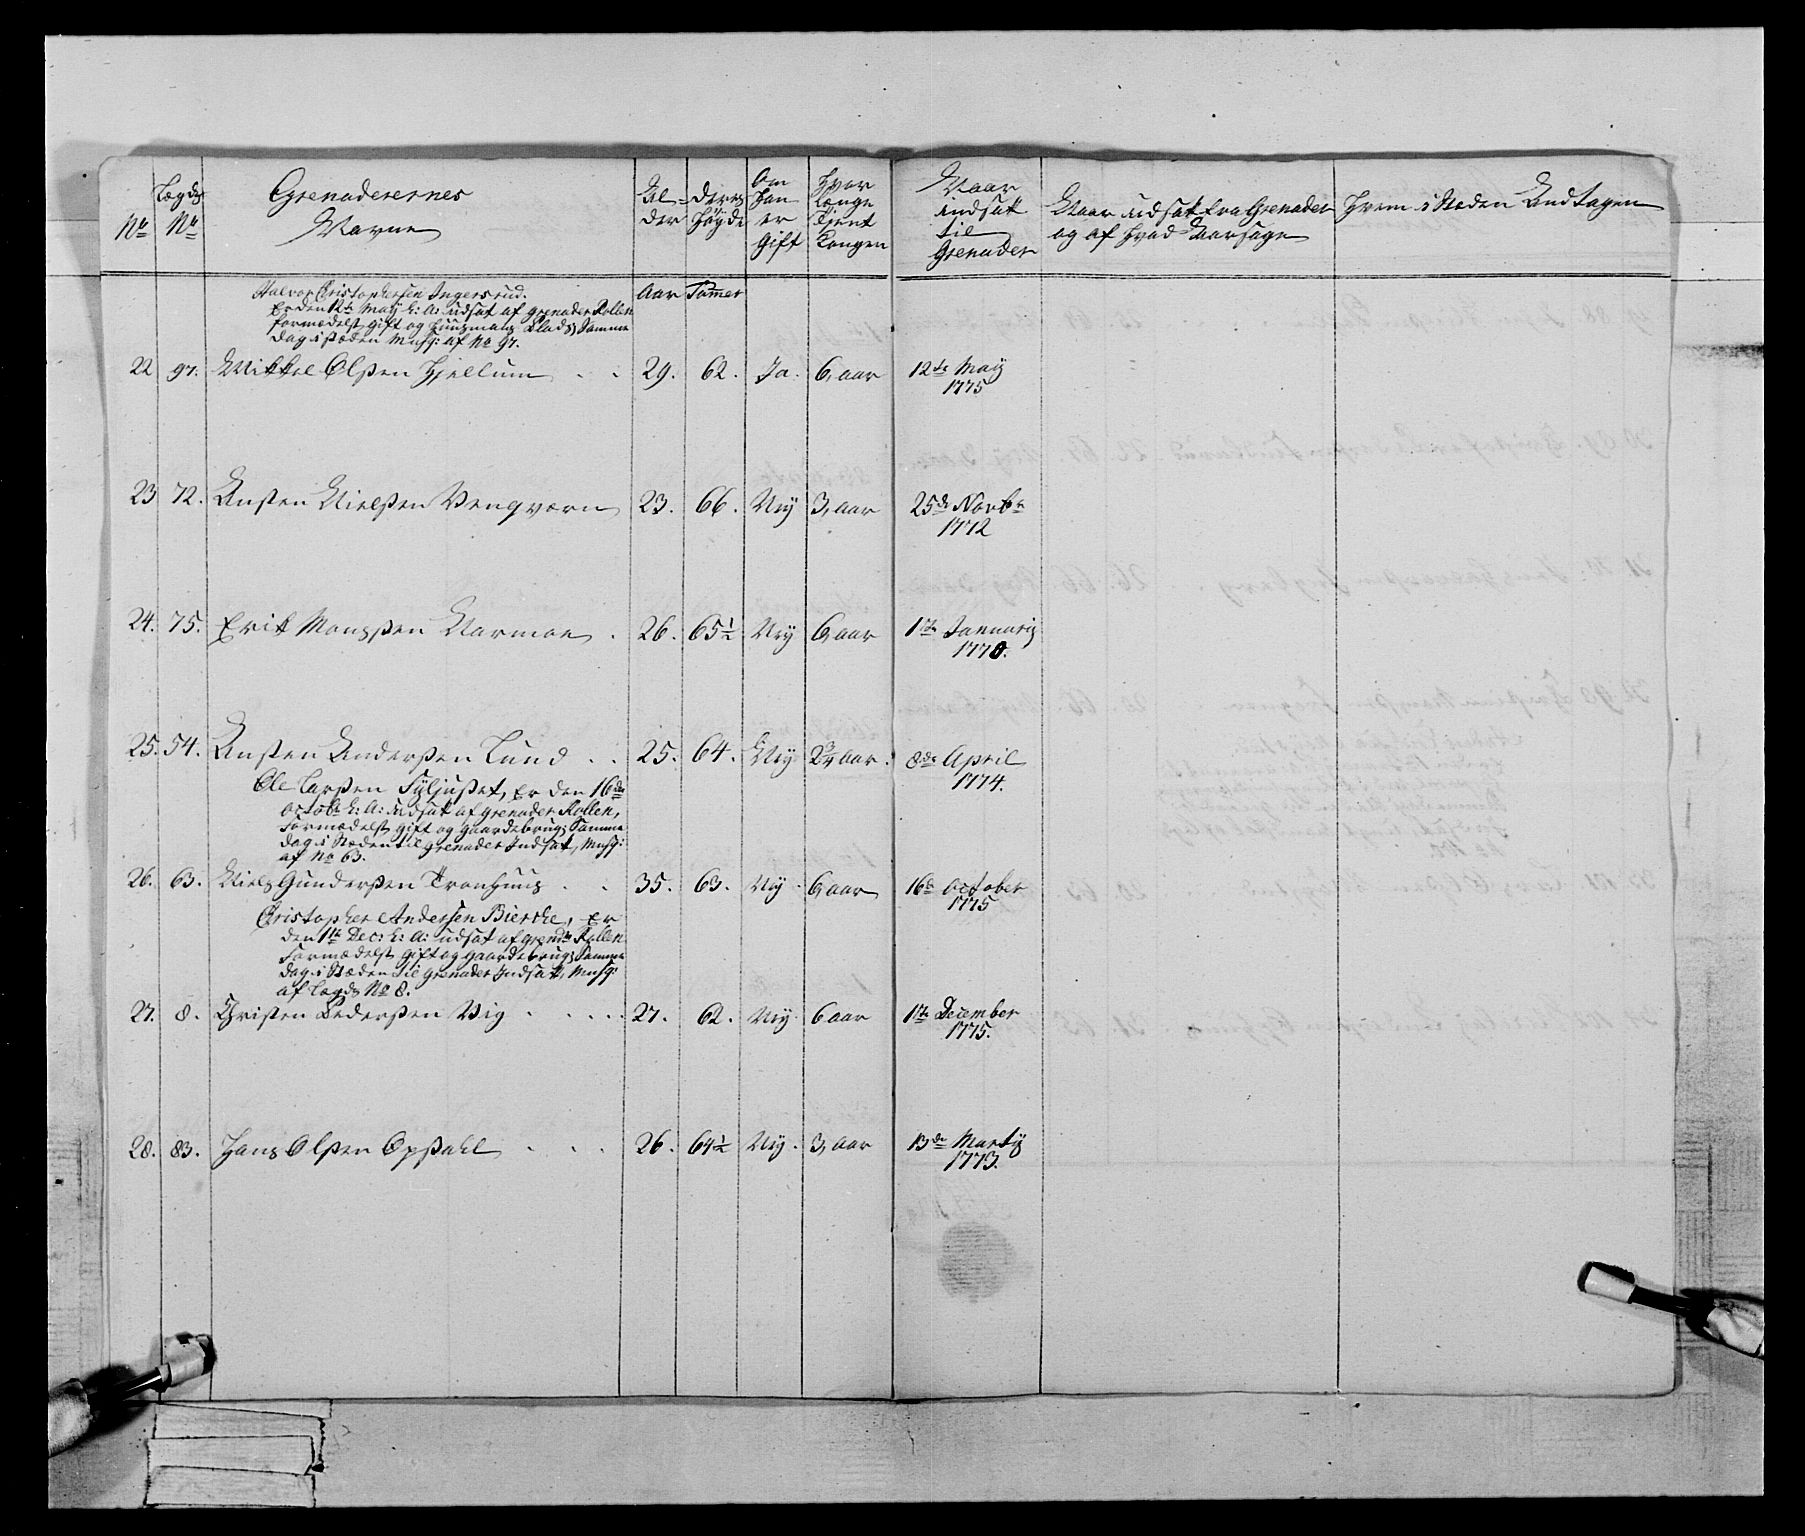 No
Lægds No
Grenaderernes Navne
Al= der
Deres Høyde
Om Han er Gift
Hvor Længe Tient Kongen
Naar indsat til Grenader
Naar udsat fra Grenader og af Hvad Aarsage
Hvem i Stæden Andtagen
Aar Tommer
Halvor Christophersen Ingersrud.
Er den 12te Maÿ h: A: udsat af grenader Rollen
formedelst gift og Huusmands Plads, Samme
dag i stæden Musq: af No 97.
22 97. Mikkel Olßen Hjellum . . 29. 62. Ja. 6, aar 12te Maÿ 1775
23 72. Ansten Nielßen Vengværn 23. 66. Nÿ 3, aar 25de Novbr 1772
24. 75. Erik Monsßen Aarmoe . 26. 65½ Nÿ 6, aar 1te Januarÿ 1770.
25. 54. Ansten Anderßen Lund . . 25. 64. Nÿ 2¾ aar. 8de April 1774.
Ole Larßen Sÿljußet, Er den 16de
octobr h: A: udsat af grenader Rollen,
Formedelst gift og gaardebrug, Samme
dag i Stæden til grenader Indsat, Musq:
af No 63.
26. 63. Niels Gunderßen Tronhuus . . 35. 63. Nÿ. 6, aar 16de october 1775
Christopher Andersen Biercke, Er
den 1te Dec: h: A: udsat af grendr Rollen
Formedelst gift og gaardebrug, Samme
dag i Stæden til grenader Indsat, Musq:
af Lægds No 8.
27. 8. Christen Pederßen Vig . . . . . 27. 62. Nÿ. 6 aar 1te December 1775.
28. 83. Hans Olßen Opßahl . . . 26. 64½ Nÿ. 3, aar 13de Martÿ 1773.